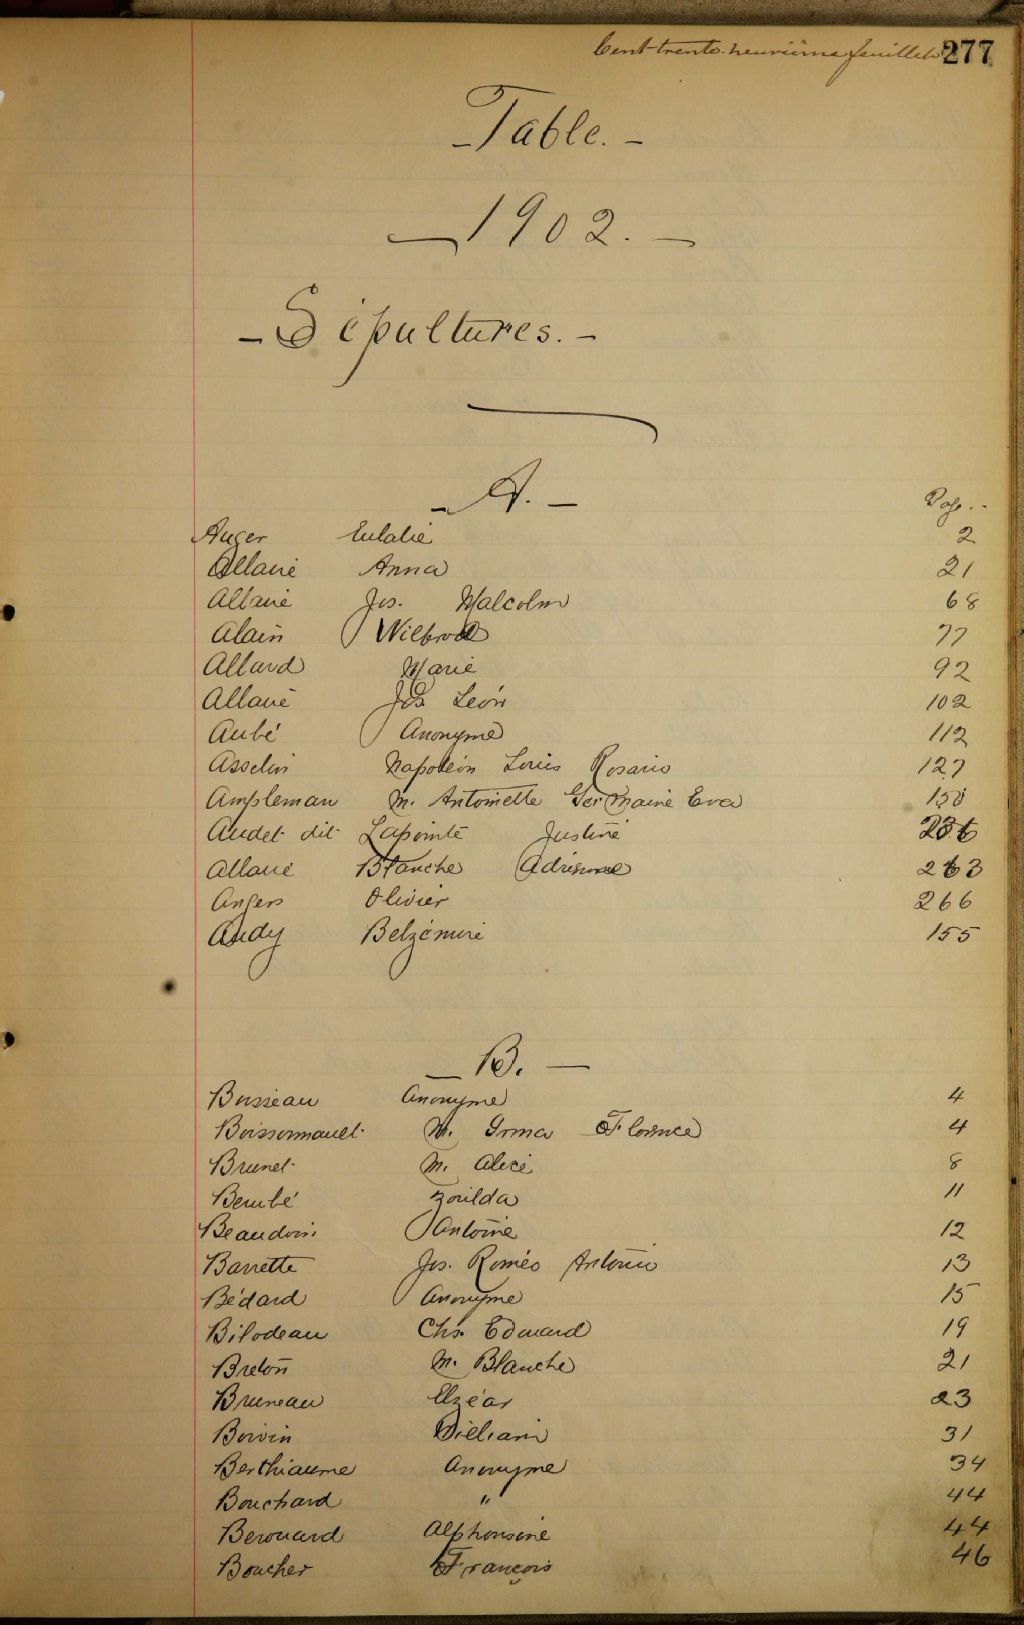 Cent-trente-neuvième feuillet 277
- Table. -
- 1902. -
- Sépultures. -
- A. -
Page. -
Auger Eulalie 2
Allaire Anna 21
Allaire Jos. Malcolm 68
Alain Wilbrod 77
Allard Marie 92
Allaire Jos León 102
Aubé Anonyme 112
Asselin Napoléon Louis Rosario 127
Ampleman M. Antoinette Germaine Eva 150
Audet dit Lapointe Justine
Allaire Blanche Adrienne 263
Angers Olivier 266
Audy Belzémire 155
- B. -
Bussieau Anonyme 4
M. Irma Florence 4
Brunet M. Alice 8
Berubé Zoilda 11
Beaudoin Antoine 12
Barrette Jos. Roméo Antonio 13
Bédard Anonyme 15
Bilodeau Chs. Edouard 19
Breton M. Blanche 21
Bruneau Elzéar 23
Boivin William 31
Berthiaume Anonyme 34
Bouchard " 44
Berouard Alphonsine 44
Boucher François 46